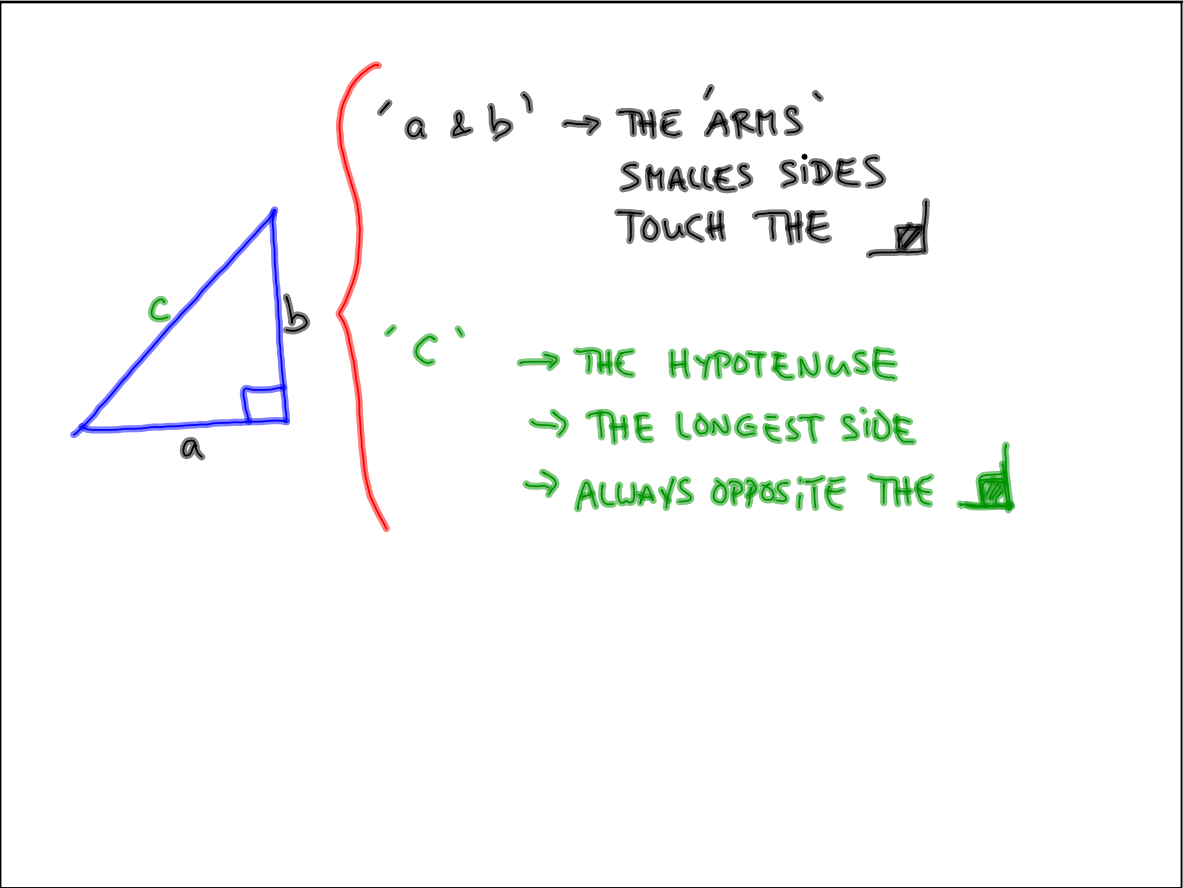 'a & b' → THE 'ARMS'
SMALLES SIDES
TOUCH THE
c
b
a
'c' → THE HYPOTENUSE
→ THE LONGEST SIDE
→ ALWAYS OPPOSITE THE